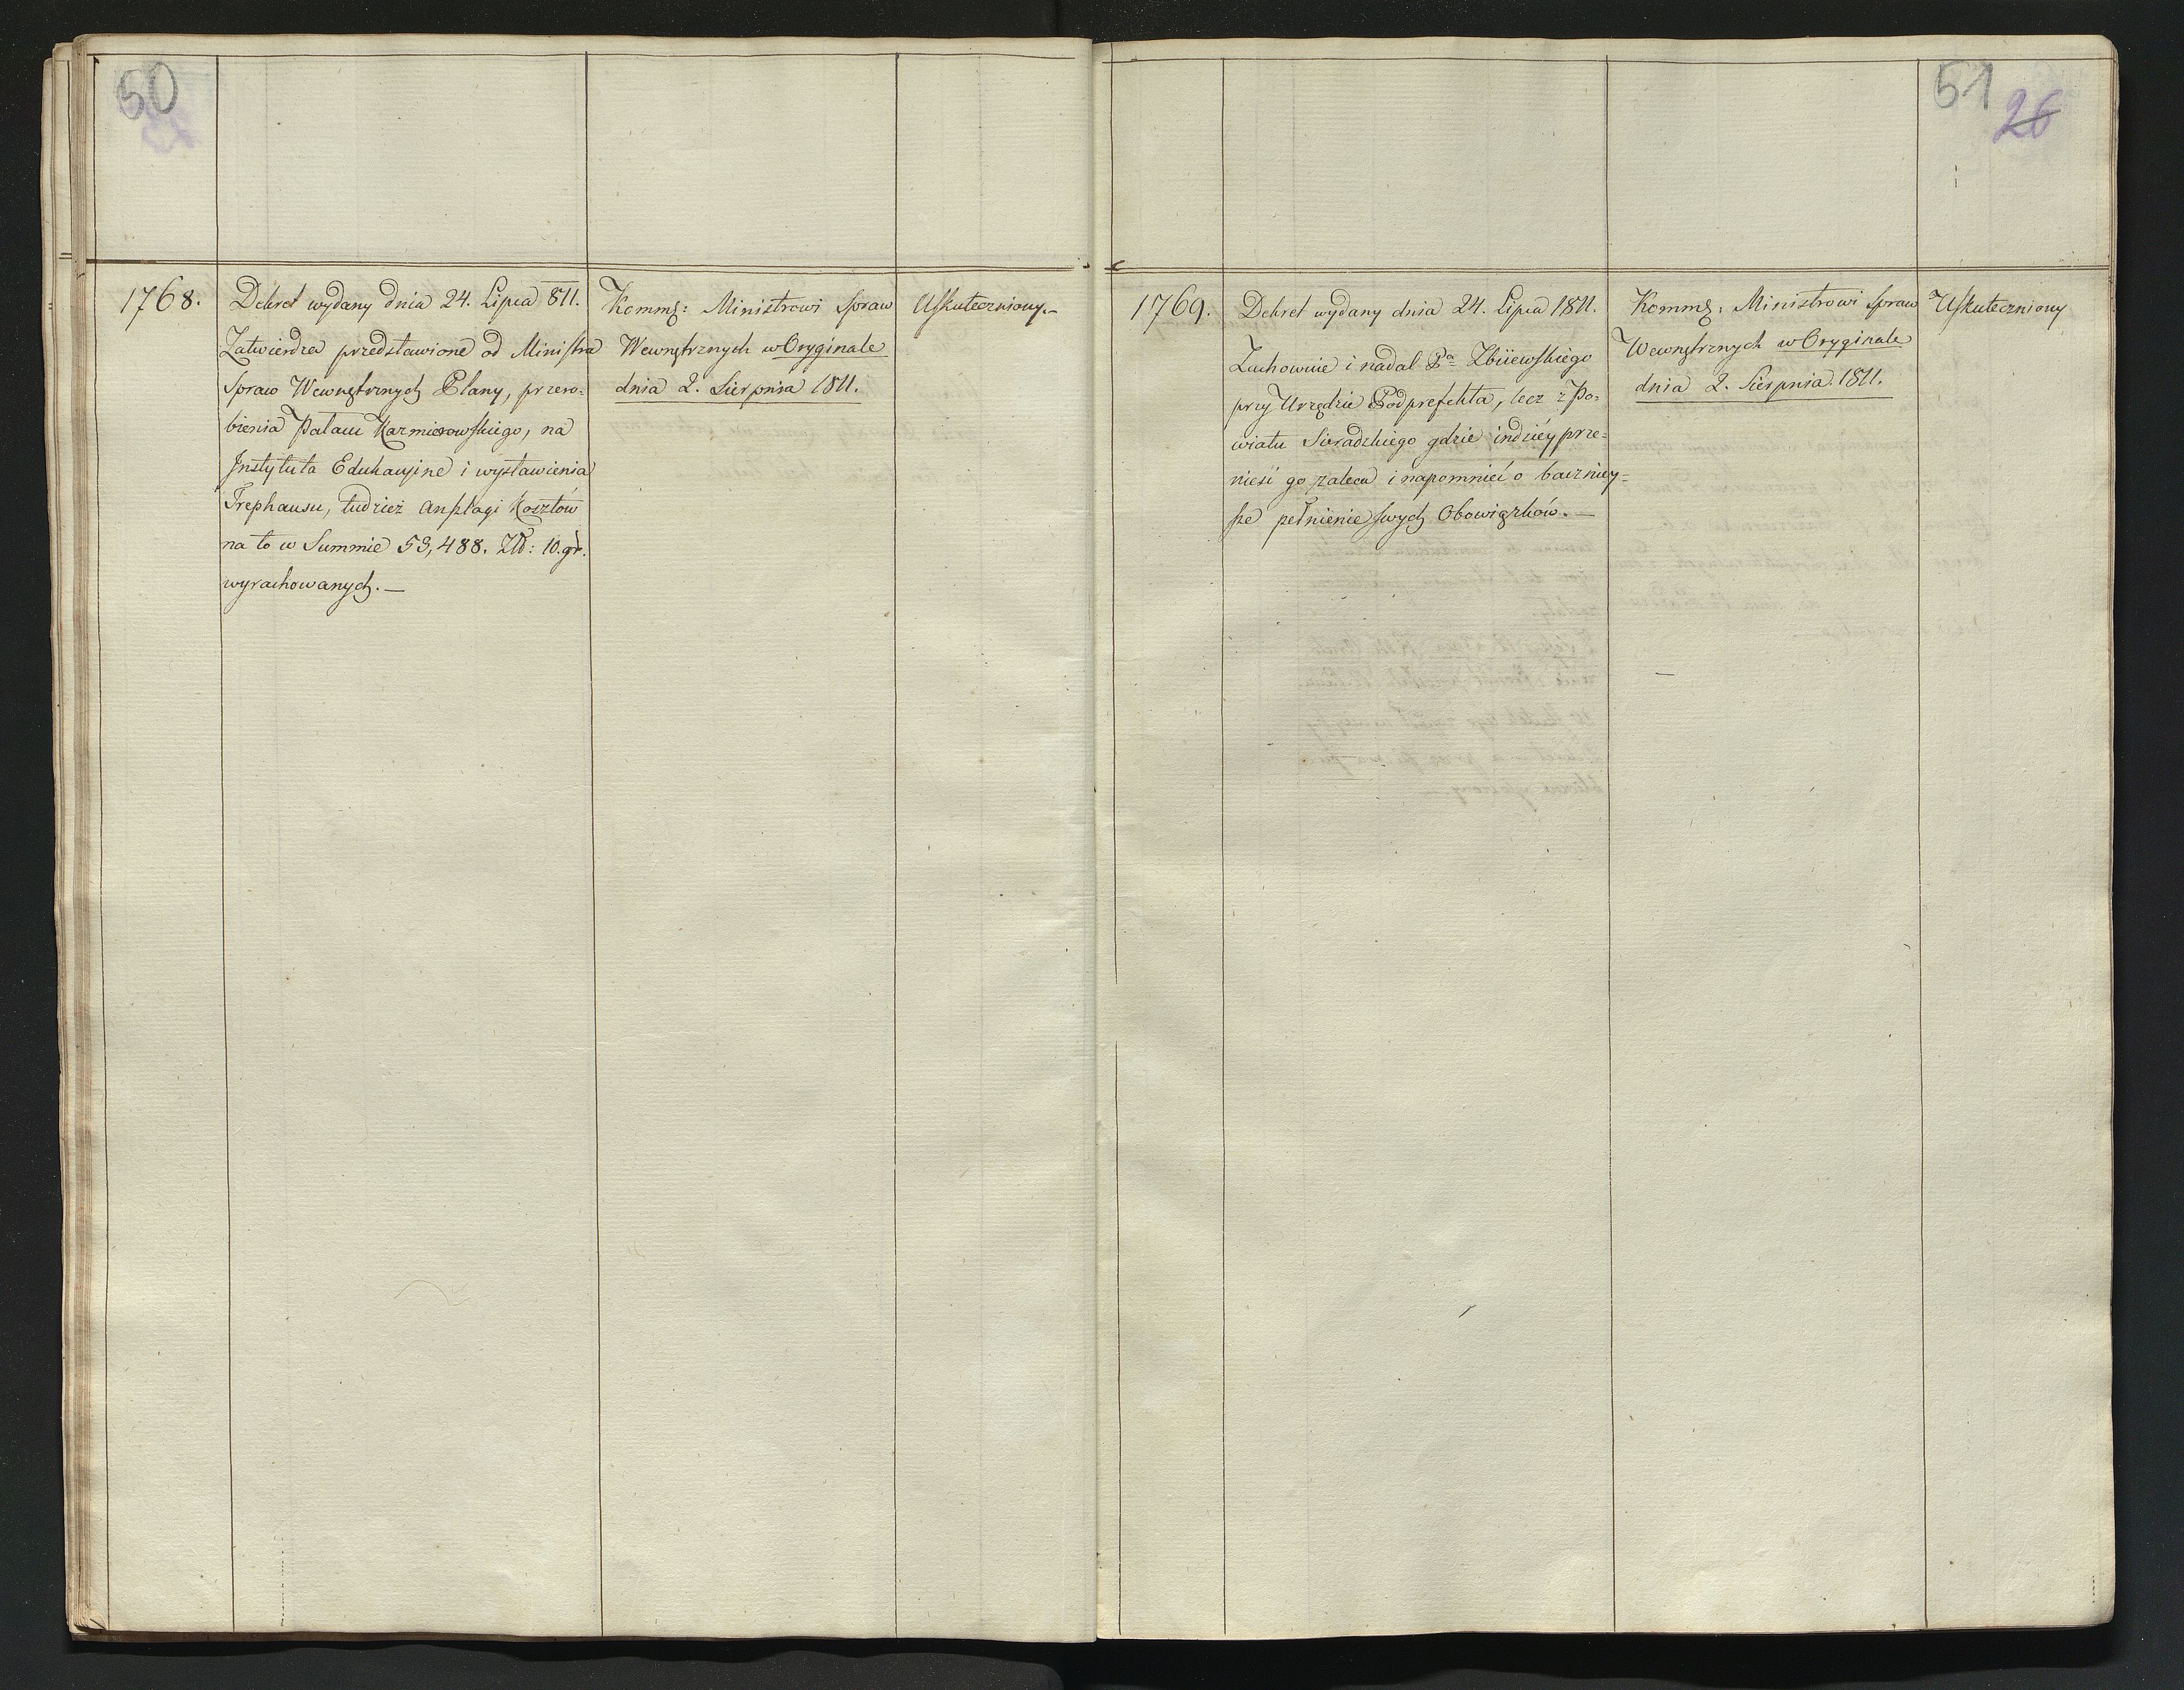 50
1768.
Dekret wydany dnia 24. Lipca 811.
Zatwierdza przedstawione od Ministra
Spraw Wewnętrznych Plany, przero=
bienia Pałacu Kazmierowskiego, na
Instytuta Edukacyine i wystawienia
Trephausu, tudzież Anszlagi Kosztów
na to w Summie 53,488. Złł: 10.gr.
wyrachowanych.—
Komm: Ministrowi Spraw
Wewnętrznych w Oryginale
dnia 2. Sierpnia 1811.
Uskuteczniony.—
51
26
1769.
Dekret wydany dnia 24. Lipca 1811.
Zachowuie i nadal Pa Zbiiewskiego
przy Urzędzie Podprefekta, lecz z Po=
wiatu Sieradzkiego gdzie indziéy prze=
nieść go zaleca i napomnieć o bacznięy=
sze pełnienie swych Obowiązków.—
Komm: Ministrowi Spraw
Wewnętrznych w Oryginale
dnia 2. Sierpnia. 1811.
Uskuteczniony